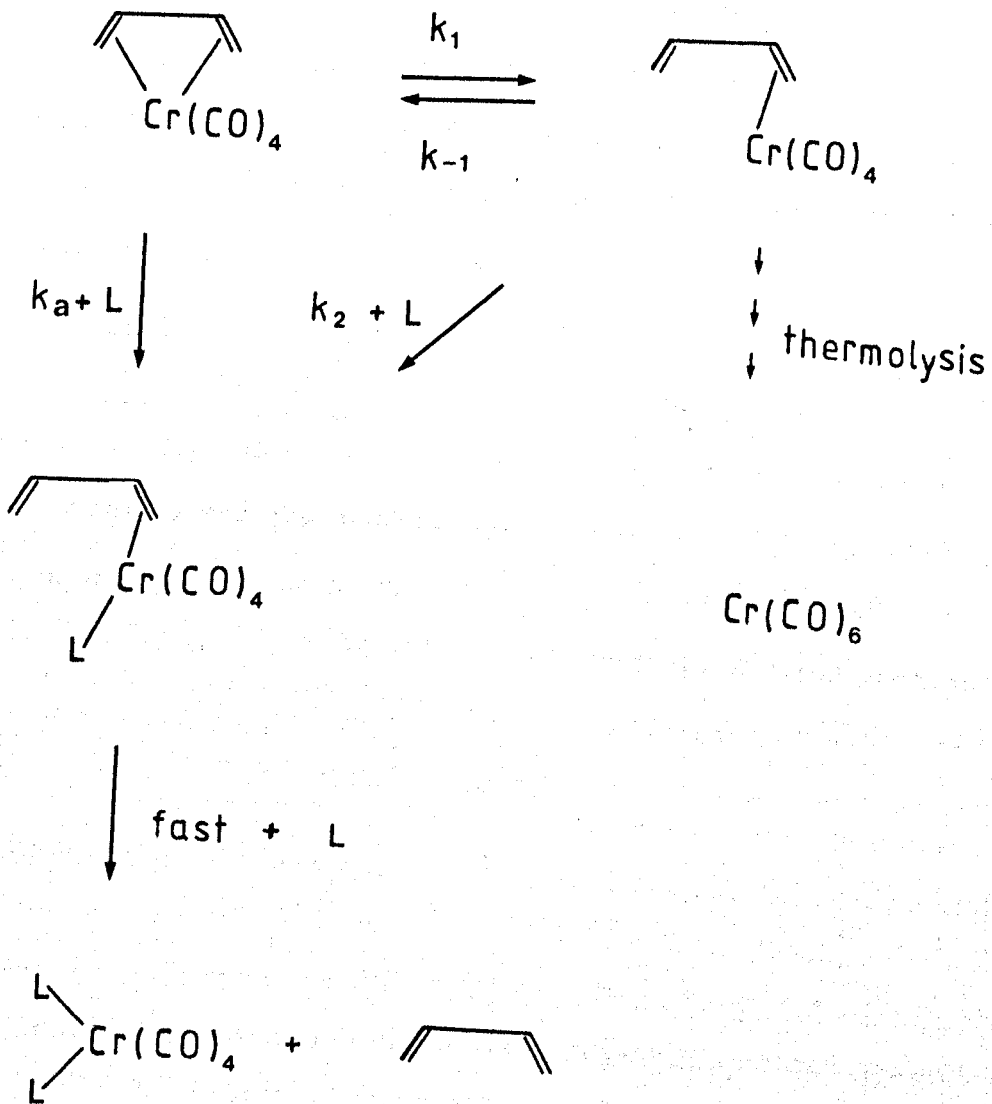 k₁
Cr(CO)₄
k₋₁
Cr(CO)₄
kₐ + L
k₂ + L
thermolysis
Cr(CO)₄
L
Cr(CO)₆
fast + L
L
Cr(CO)₄ +
L